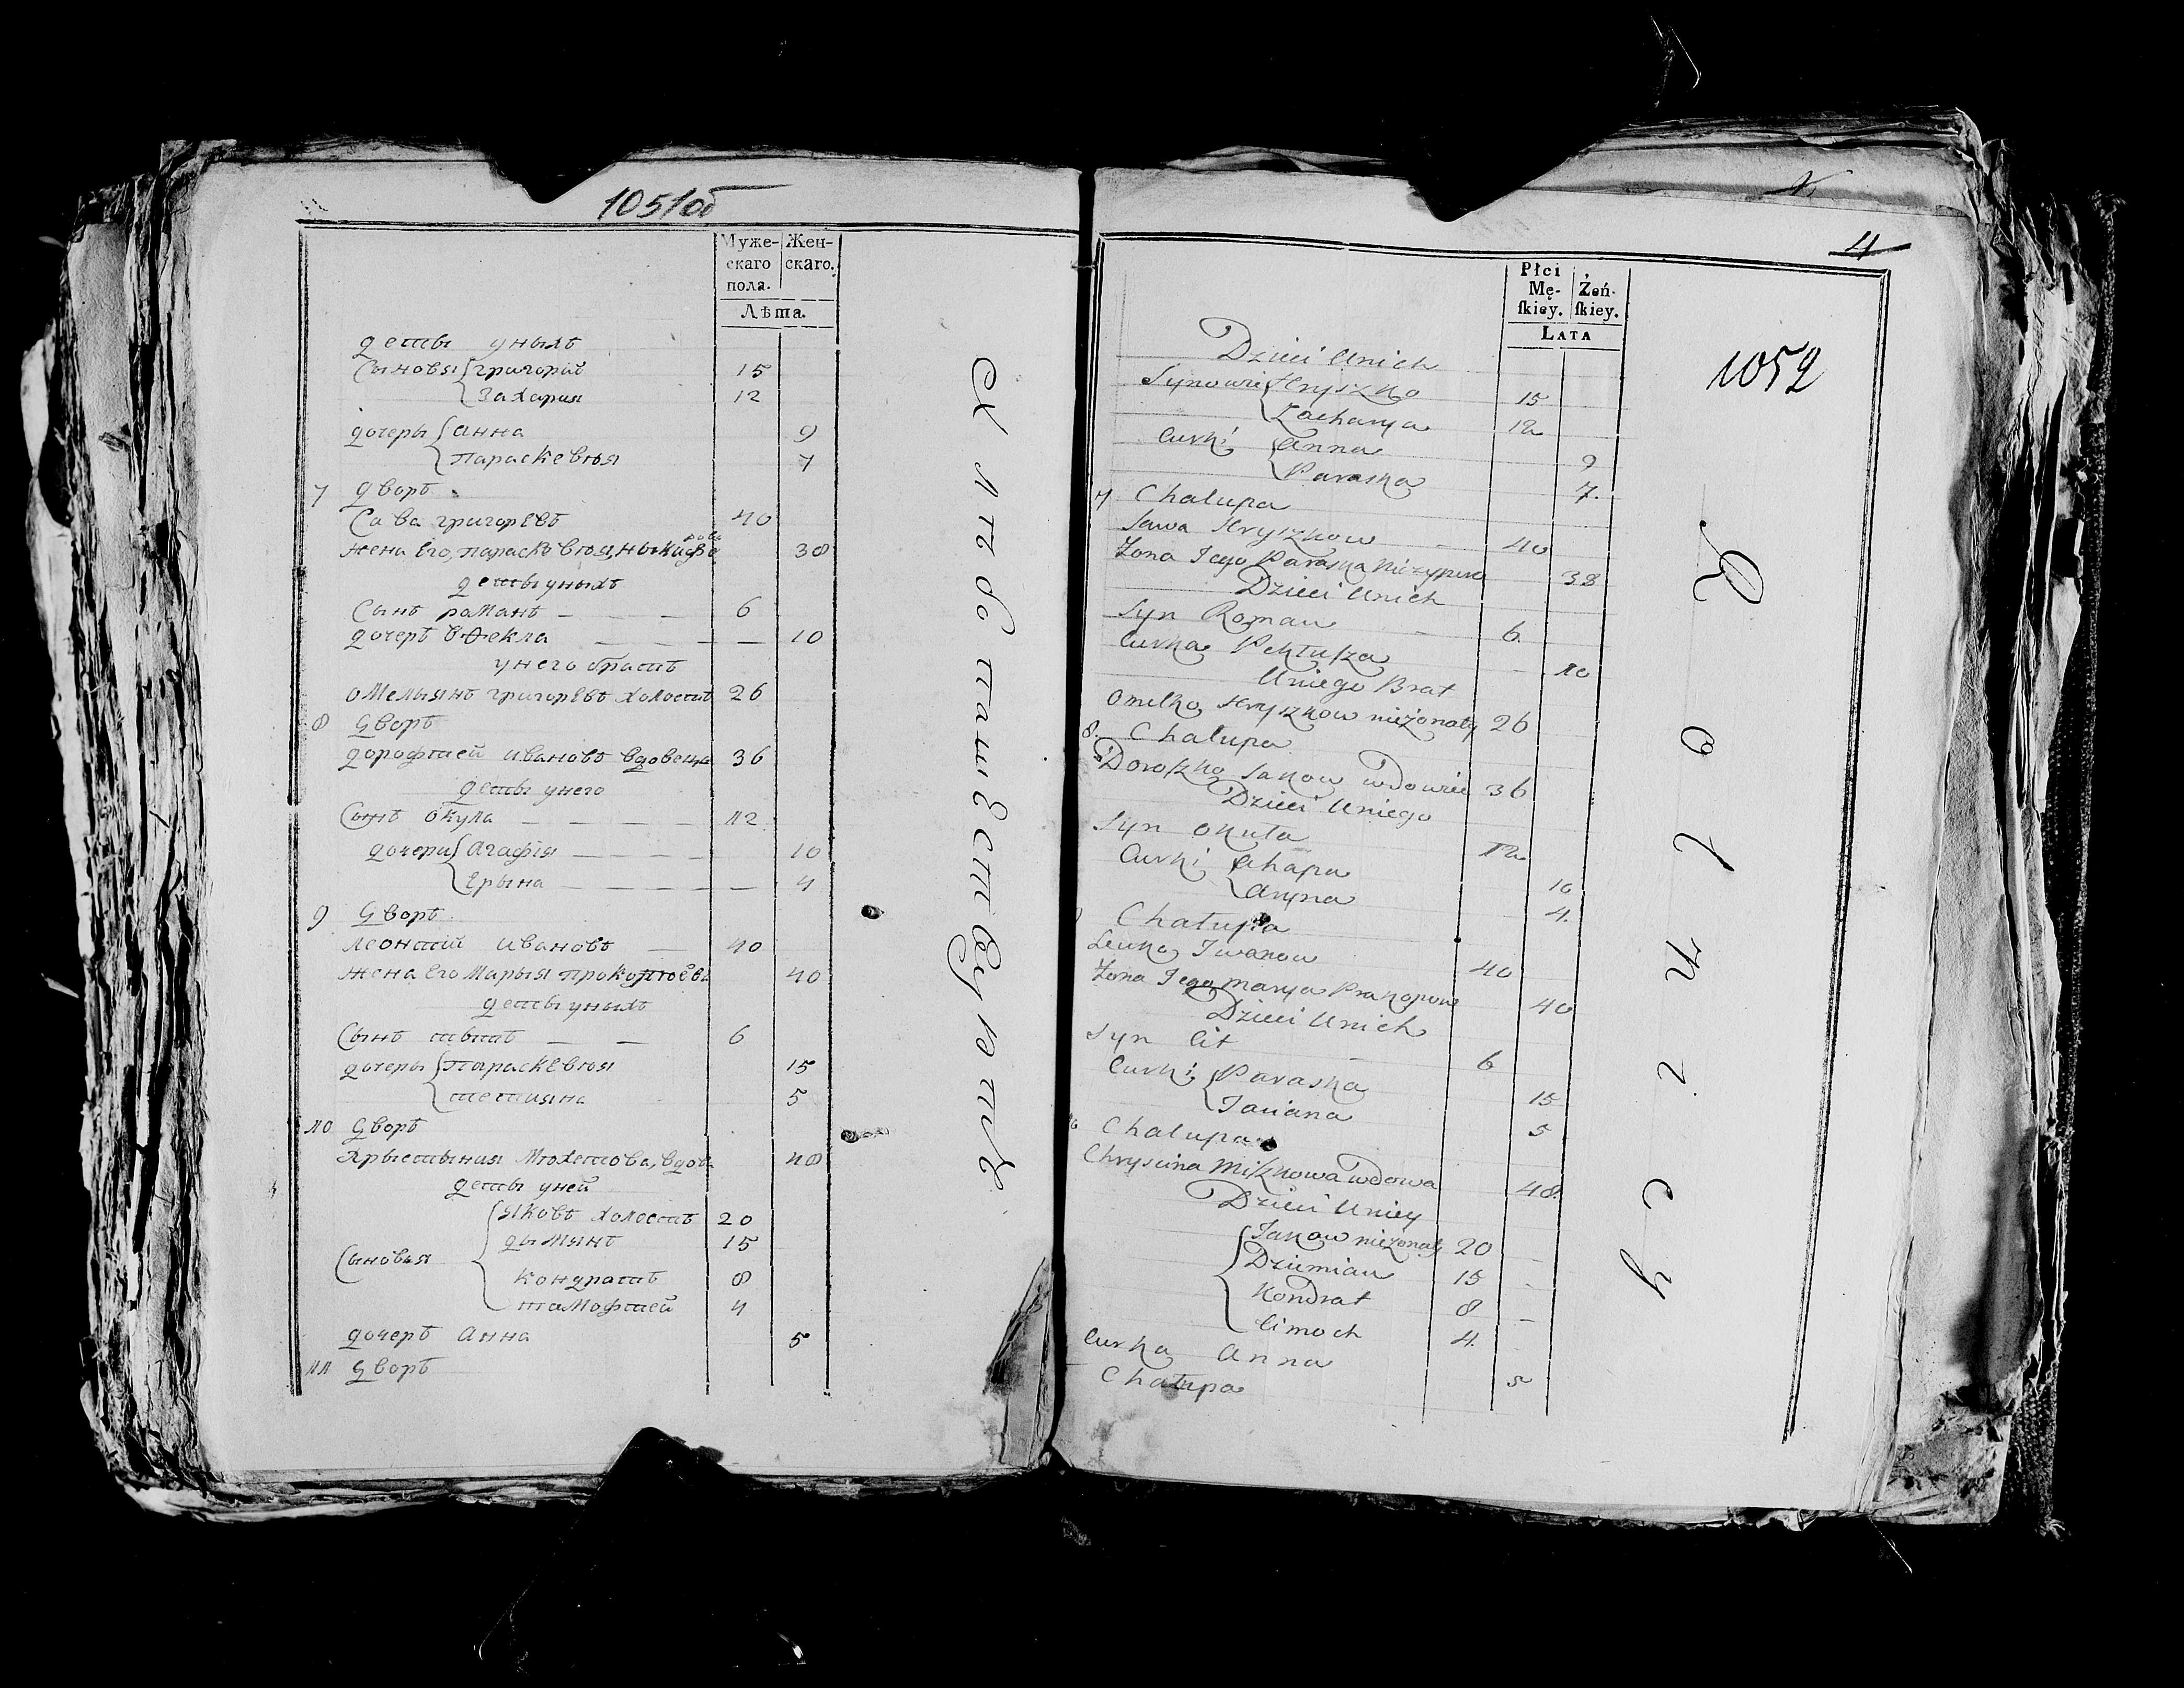 1051об
Муже- Жен-
скаго скаго.
пола.
Лѣта.
дети уныхъ
Сыновья григорий 15
Захария 12
дочеры анна 9
параскевия 7
7 дворъ
Сава григорьевъ 40
жена его, параскевия, 38
дети уныхъ
Сынъ романъ 6
дочеръ Фекла 10
унего братъ
омельянъ григорьевъ холостъ 26
8 дворъ
дорофтей ивановъ вдовецъ 36
дети унего
Сынъ окула 12
дочери Агафiя 10
Ерына 4
9 дворъ
леонтий ивановъ 40
жена его Марыя прокопиева 40
дети уныхъ
Сынъ титъ 6
дочеры параскевия 15
тетияна 5
10 дворъ
Хрыстыния вдова 48
дети уней
Сыновья
яковъ холостъ 20
дымянъ 15
кондратъ 8
тимофтей 4
дочеръ Анна 5
11 дворъ
Хлебопашествуютъ
4
1052
Płci
Mę- Żeń-
ſkiey. ſkiey.
LATA
Dzieci Unich
Synowie Hryszko 15
Zacharya 12
Curki Anna 9
Paraska 7.
7 Chałupa
Sawa Hryszkow 40
Zona Jego Paraska 38
Dzieci Unich
Syn Roman 6.
Curka 10
Uniego Brat
Omelko Hryszkow nieżonaty 26
8. Chałupa
Doroszko Janow wdowiec 36
Dzieci Uniego
Syn Okuła 12
Curki Ahapa 10
Aryna 4.
Chałupa
Lewko Iwanow 40
Zona Jego Marya Prakopowa 40
Dzieci Unich
Syn Cit 6
Curki Paraska 15
Taciana 5
Chałupa
Chryscina Miszkowa wdowa 48.
Dzieci Uniey
Jakow nieżonaty 20
Dziemian 15
Kondrat 8
Cimoch 4.
Curka Anna 5
Chałupa
Rolnicy